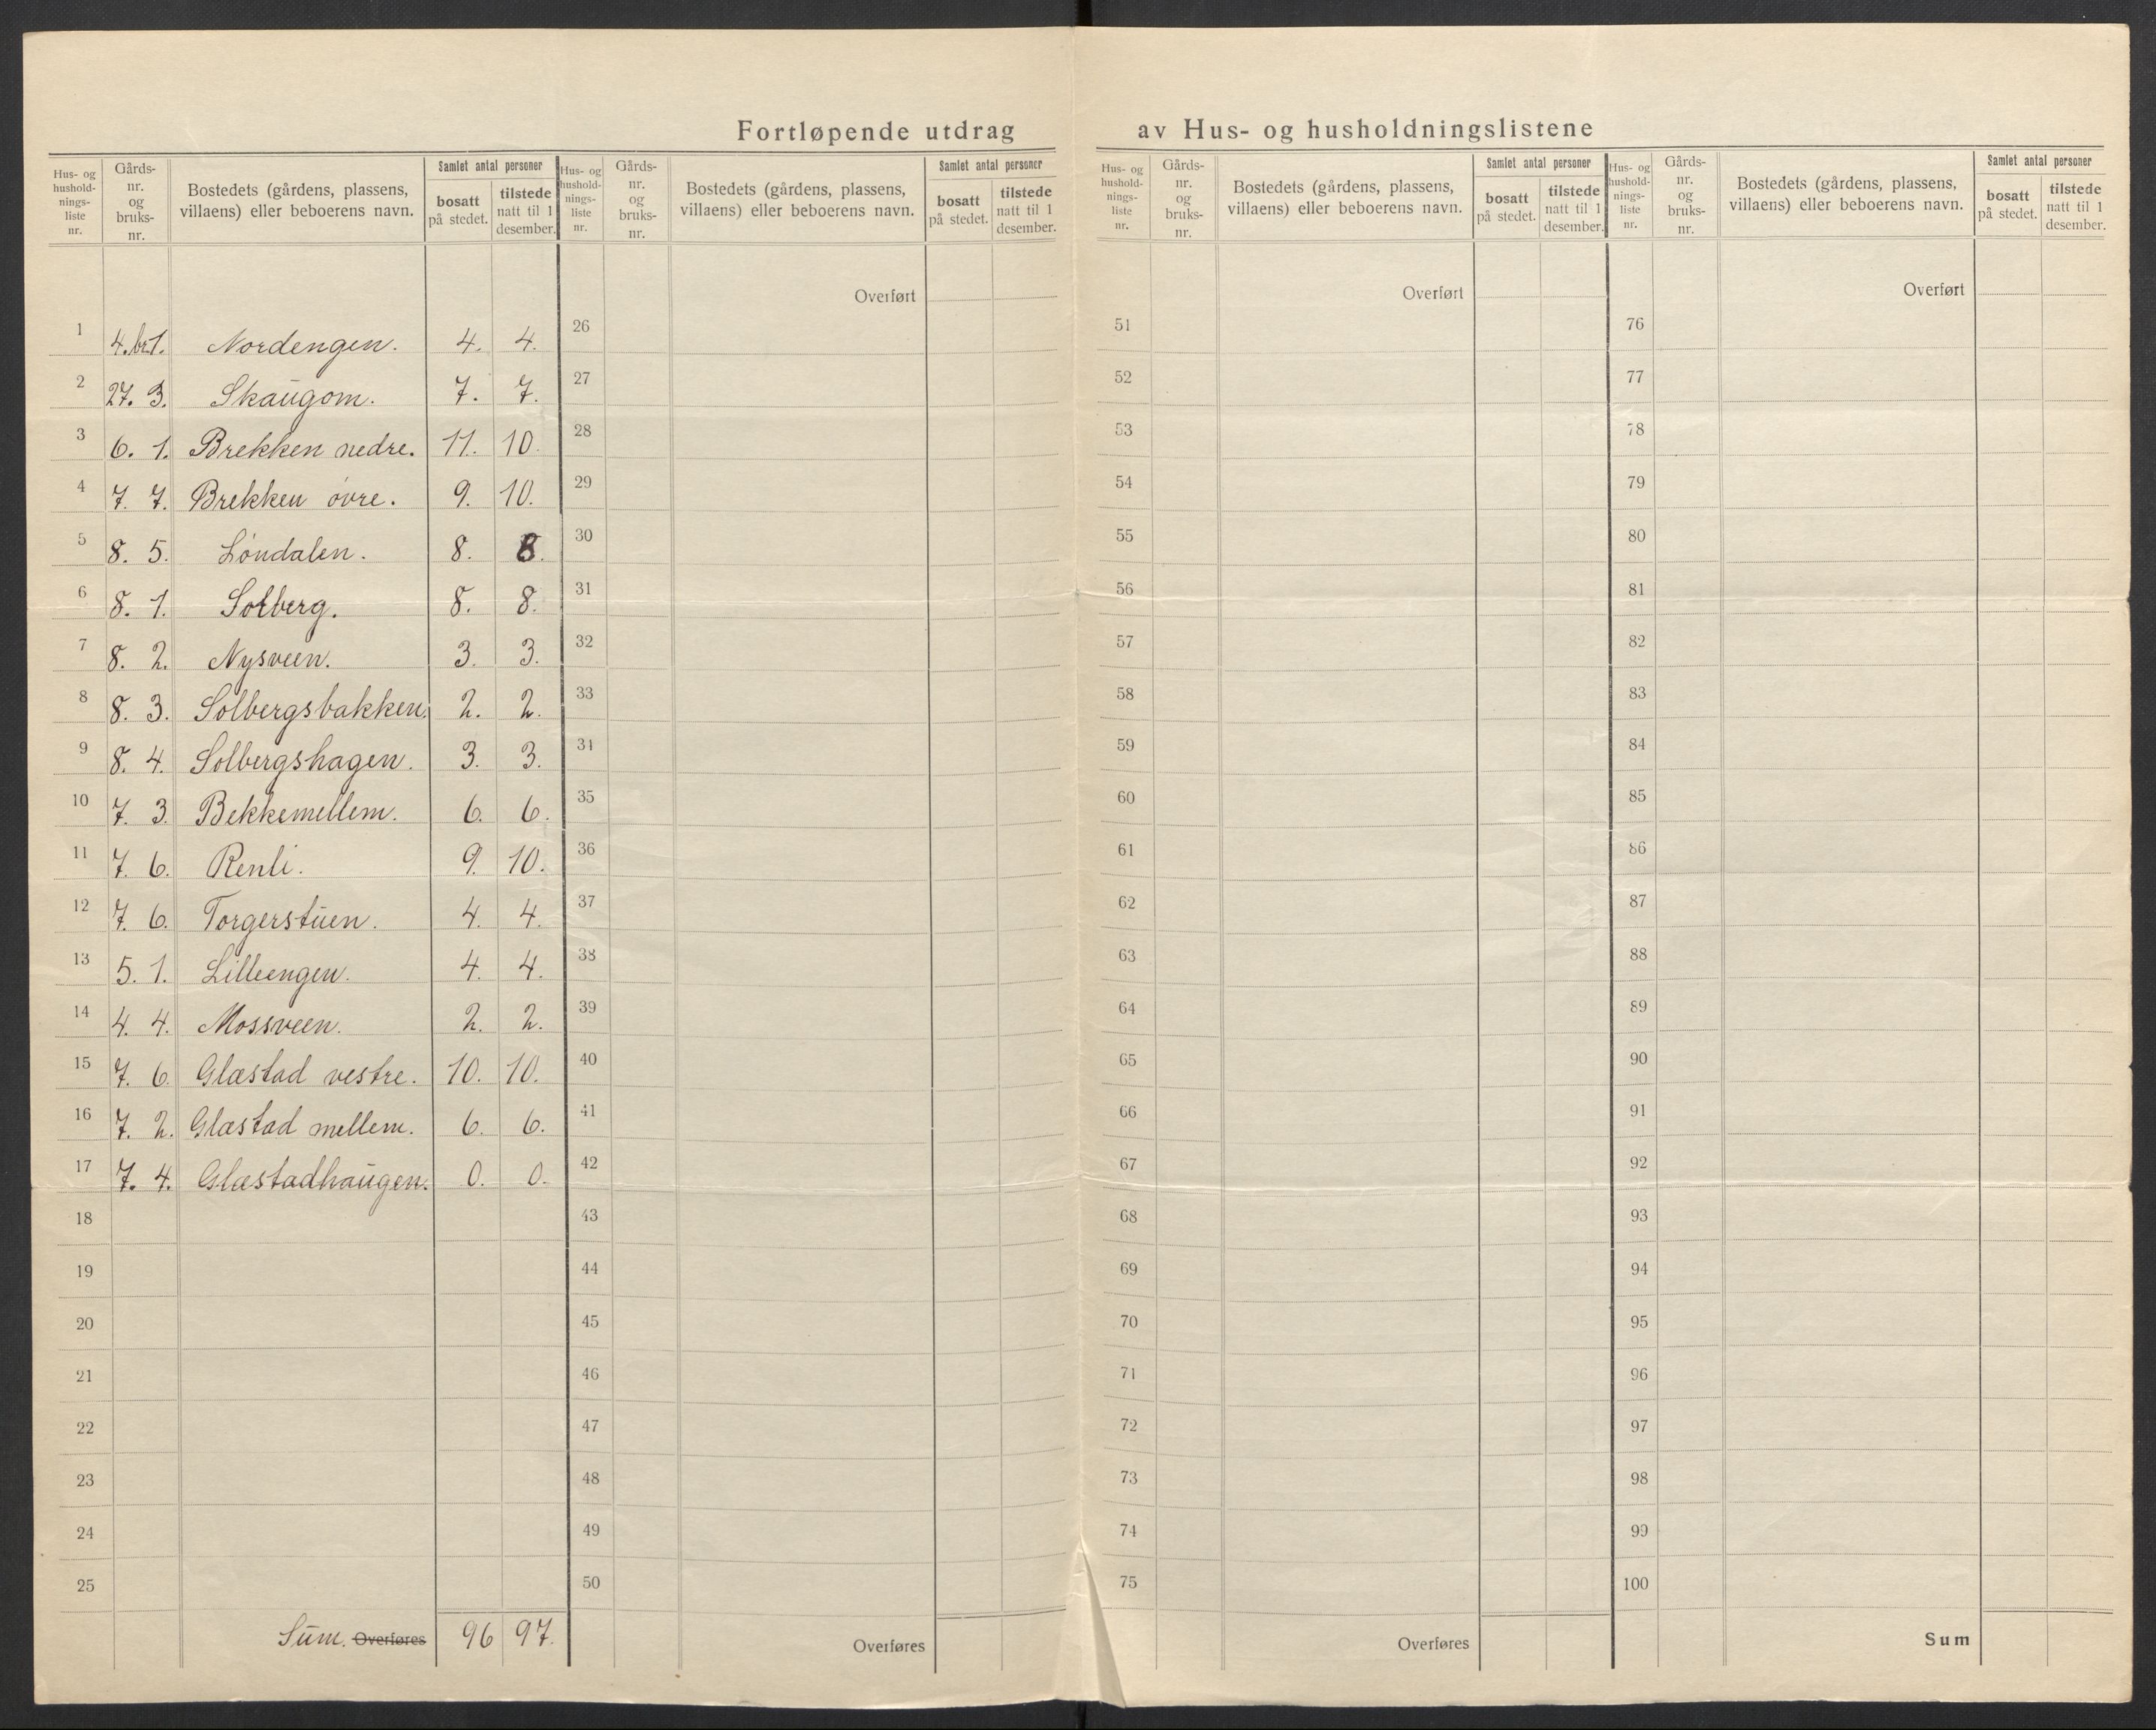 Fortløpende utdrag av Hus- og husholdningslistene
Hus- og hushold-nings-liste nr. | Gårds-nr. og bruks-nr. | Bostedets (gårdens, plassens, villaens) eller beboerens navn. | Samlet antal personer | bosatt på stedet. | tilstede natt til 1 desember.
Hus- og hushold-nings-liste nr. | Gårds-nr. og bruks-nr. | Bostedets (gårdens, plassens, villaens) eller beboerens navn. | Samlet antal personer | bosatt på stedet. | tilstede natt til 1 desember.
Hus- og hushold-nings-liste nr. | Gårds-nr. og bruks-nr. | Bostedets (gårdens, plassens, villaens) eller beboerens navn. | Samlet antal personer | bosatt på stedet. | tilstede natt til 1 desember.
Hus- og hushold-nings-liste nr. | Gårds-nr. og bruks-nr. | Bostedets (gårdens, plassens, villaens) eller beboerens navn. | Samlet antal personer | bosatt på stedet. | tilstede natt til 1 desember.
Overført Overført Overført
1 4. br 1. Nordengen. 4. 4. 26 51 76
2 27. 3. Skaugom. 7. 7. 27 52 77
3 6. 1. Brekken nedre. 11. 10. 28 53 78
4 7. 7. Brekken øvre. 9. 10. 29 54 79
5 8. 5. Løndalen. 8. 8. 30 55 80
6 8. 1. Solberg. 8. 8. 31 56 81
7 8. 2. Nysveen. 3. 3. 32 57 82
8 8. 3. Solbergsbakken. 2. 2. 33 58 83
9 8. 4. Solbergshagen. 3. 3. 34 59 84
10 7. 3. Bekkemellem. 6. 6. 35 60 85
11 7. 6. Renli. 9. 10. 36 61 86
12 7. 6. Torgerstuen. 4. 4. 37 62 87
13 5. 1. Lilleengen. 4. 4. 38 63 88
14 4. 4. Mossveen. 2. 2. 39 64 89
15 7. 6. Glæstad vestre. 10. 10. 40 65 90
16 7. 2. Glæstad mellem. 6. 6. 41 66 91
17 7. 4. Glæstadhaugen. 0. 0. 42 67 92
18 43 68 93
19 44 69 94
20 45 70 95
21 46 71 96
22 47 72 97
23 48 73 98
24 49 74 99
25 50 75 100
Sum. Overføres 96 97. Overføres Overføres Sum